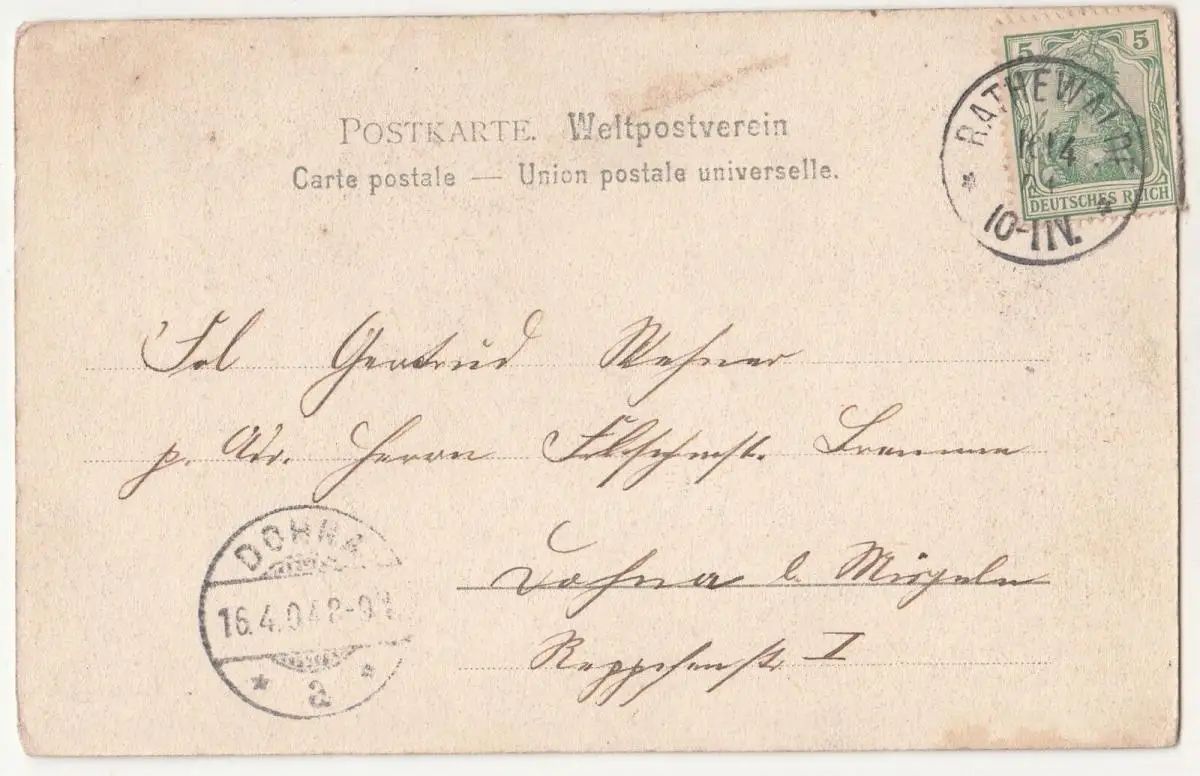 POSTKARTE. Weltpostverein
Carte postale — Union postale universelle.
5 5
DEUTSCHES REICH
RATHEWALDE
* 10-11V. *
Frl Gertrud Wehner
p. Adr. Herrn
Dohna b. Mügeln
I
DOHNA
16.4.04 8-9V.
* a *